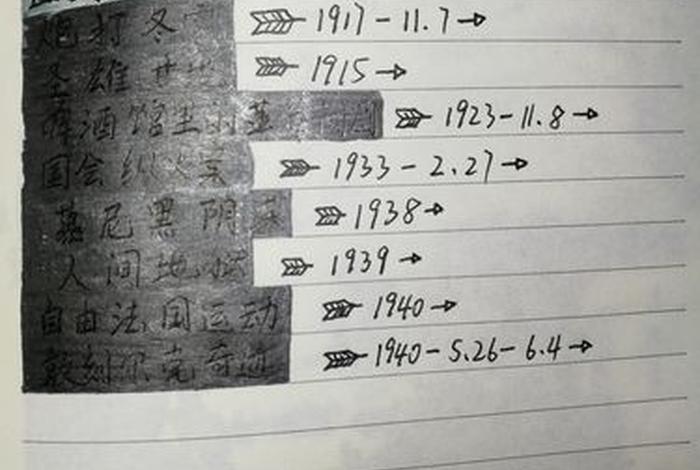 炮打冬宫 1917-11.7→
圣雄甘地 1915→
啤酒馆里的 1923-11.8→
国会纵火案 1933-2.27→
慕尼黑阴谋 1938→
人间地狱 1939→
自由法国运动 1940→
敦刻尔克奇迹 1940-5.26-6.4→